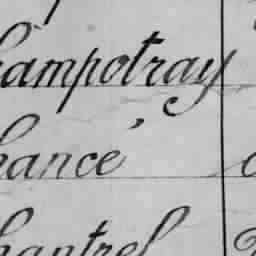 hampotray
hancé
hantrel